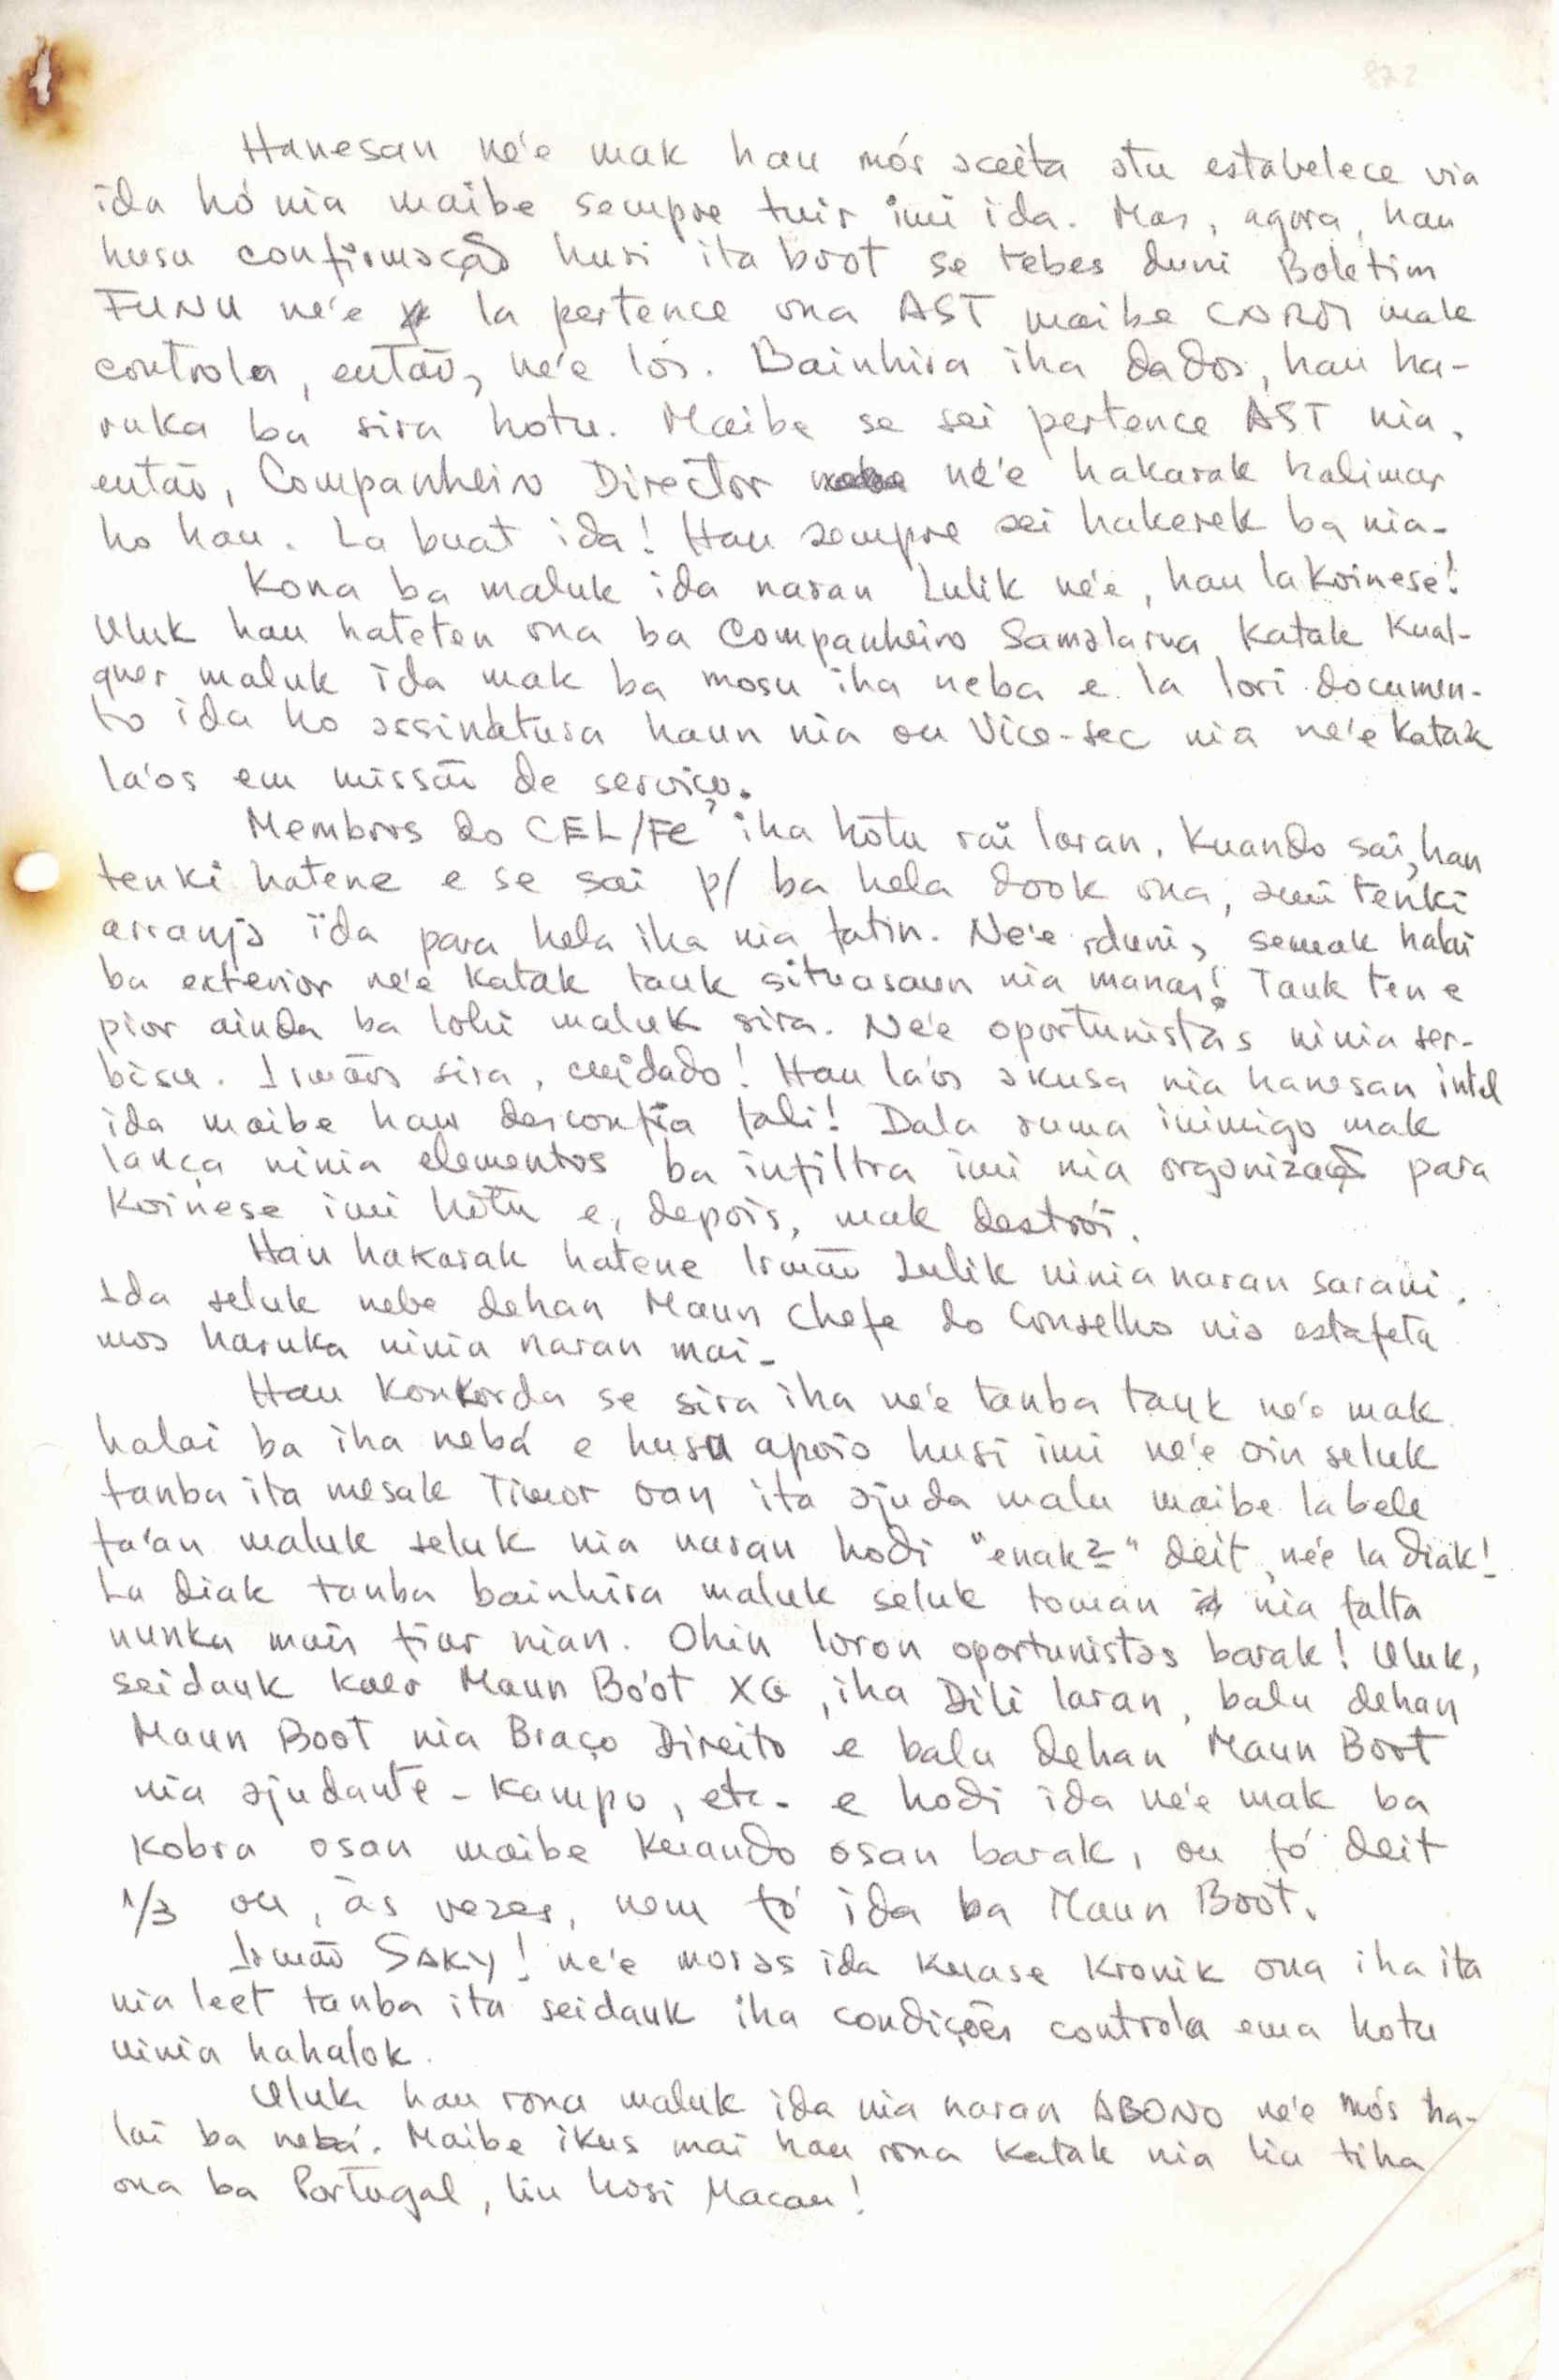 Hanesan ne'e mak hau mós aceita atu estabelece via
ida hó nia maibe sempre tuir imi ida. Mas, agora, hau
husu confirmação husi ita boot se tebes duni Boletim
FUNU ne'e la pertence ona AST maibe CNRM mak
controla, então, ne'e lós. Bainhira iha dados, hau ha-
ruka ba sira hotu. Maibe se sei pertence AST nia,
então, Companheiro Director ne'e hakarak halimar
ho hau. La buat ida! Hau sempre sei hakerek ba nia.
Kona ba maluk ida naran Lulik ne'e, hau la koinese!
Uluk hau hateten ona ba Companheiro Samalarua katak kual-
quer maluk ida mak ba mosu iha neba e la lori documen-
to ida ho assinatura haun nia ou Vice-sec nia ne'e katak
la'os em missão de serviço.
Membros do CEL/FE iha hotu rai laran. Kuando sai, hau
tenki hatene e se sai p/ ba hela dook ona, ami tenki
arranja ida para hela iha nia fatin. Ne'e duni, semak halai
ba exterior ne'e katak tauk situasaun nia manas! Tauk ten e
pior ainda ba lohi maluk sira. Ne'e oportunistas ninia ser-
bisu. Irmãos sira, cuidado! Hau la'os akusa nia hanesan intel
ida maibe hau desconfia fali! Dala ruma inimigo mak
lança ninia elementos ba infiltra imi nia organização para
koinese imi hotu e, depois, mak destrói.
Hau hakarak hatene Irmão Lulik ninia naran sarani.
Ida seluk nebe dehan Maun Chefe do Conselho nia estafeta
mos haruka ninia naran mai.
Hau konkorda se sira iha ne'e tanba tauk ne'e mak
halai ba iha nebá e husu apoio husi imi ne'e oin seluk
tanba ita mesak Timor oan ita ajuda malu maibe labele
fa'an maluk seluk nia naran hodi "enak2" deit, ne'e la diak!
La diak tanba bainhira maluk seluk toman nia falta
nunka mais fiar nian. Ohin loron oportunistas barak! Uluk,
seidauk kaer Maun Bo'ot XG, iha Dili laran, balu dehan
Maun Boot nia Braço Direito e balu dehan Maun Boot
nia ajudante-kampo, etc. e hodi ida ne'e mak ba
kobra osan maibe kuando osan barak, ou fó deit
1/3 ou, às vezes, nem fó ida ba Maun Boot.
Irmão SAKY! ne'e moras ida kuase kronik ona iha ita
nia leet tanba ita seidauk iha condições controla ema hotu
ninia hahalok.
Uluk hau rona maluk ida nia naran ABONO ne'e mós ha-
lai ba nebá. Maibe ikus mai hau rona katak nia liu tiha
ona ba Portugal, liu hosi Macau!